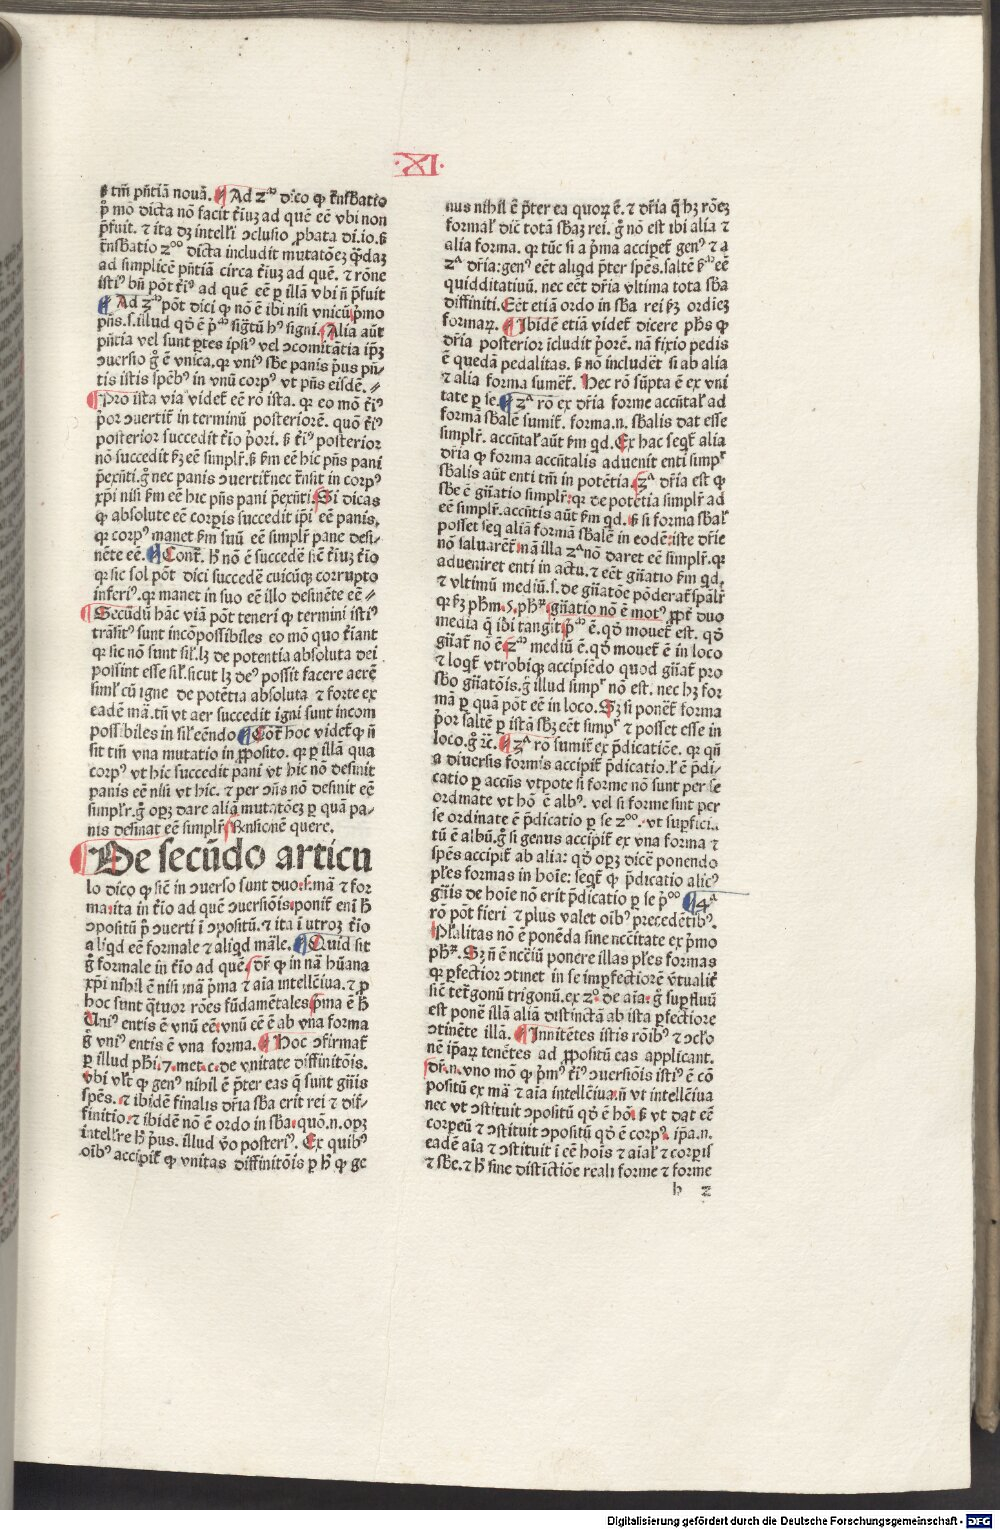 ·XI·
ꝫ tm̄ pn̄tiā nouā. ¶ Ad 2ᵐ dico ꝙ trāſb̄atio
p̄ mō dicta nō facit t̄iuꝫ ad quē eē vbi non
p̄fuit. ⁊ ita dꝫ intelligi ↄcluſio ꝓbata di.io.ꝫ
trāſb̄atio 2ᵒ dicta includit mutatōeꝫ q̄daꝫ
ad ſimplicē pn̄tiā circa t̄iuꝫ ad quē. ⁊ rōne
iſtiꝰ bn̄ pōt t̄iꝰ ad quē eē ꝑ illā vbi n̄ p̄fuit
¶ Ad 3ᵐ pōt dici ꝙ nō ē ibi niſi vnicū p̄mo
pn̄s.ſ.illud qd̄ ē p̄ᵐ ſigt̄ū hꝰ ſigni. Alia aūt
pn̄tia vel ſunt ꝑtes ipſiꝰ vel ↄcomitātia ip̄ꝫ
ↄuerſio g̊ ē vnica.qꝛ vniꝰ ſb̄e panis p̄us pn̄/
tis iſtis ſpēbꝰ in vnū corpꝰ vt pn̄s eiſdē.//
¶ Pro iſta via videt̄ eē rō iſta. qꝛ eo mō t̄iꝰ
p̄or ↄuertit̄ in terminū poſteriorē. quō t̄iꝰ
poſterior ſuccedit t̄io p̄ori. ꝫ t̄iꝰ poſterior
nō ſuccedit ꝫm eē ſimpl̄r.ꝫ ꝫm eē hic pn̄s pani
p̄exn̄ti.g̊ nec panis ↄuertit̄ nec t̄nſit in corpꝰ
xp̄i niſi ꝫm eē hic pn̄s pani p̄exn̄ti. Si dicas
ꝙ abſolute eē corꝑis ſuccedit ip̄i eē panis,
qꝛ corpꝰ manet ꝫm ſuū eē ſimpl̄r pane deſi/
nēte eē. ¶ Cont̄. h̄ nō ē ſuccedē ſic̄ t̄iuꝫ t̄io
qꝛ ſic ſol pōt dici ſuccedē cuicūqꝫ corrupto
inferiꝰ.qꝛ manet in ſuo eē illo deſinēte eē//
¶ Secūdū hāc viā pōt teneri ꝙ termini iſtiꝰ
trāſitꝰ ſunt incōpoſſibiles eo mō quo t̄iant
qꝛ ſic nō ſunt ſil̄.lꝫ de potentia abſoluta dei
poſſint eſſe ſil̄.ſicut lꝫ deꝰ poſſit facere aerē
ſimł cū igne de potētia abſoluta ⁊ forte ex
eadē mā.tn̄ vt aer ſuccedit igni ſunt incom
poſſibiles in ſil̄ eēndo ¶ Cōt̄ hoc videt̄ ꝙ n̄
ſit tm̄ vna mutatio in ꝓpoſito. qꝛ ꝑ illā qua
corpꝰ vt hic ſuccedit pani vt hic nō deſinit
panis eē niſi vt hic. ⁊ per ↄn̄s nō deſinit eē
ſimpl̄r.g̊ opꝫ dare aliā mutatōeꝫ ꝑ quā pa/
nis deſinat eē ſimpl̄r Rn̄ſionē quere.
¶ De ſecūdo articu
lo dico ꝙ ſic̄ in ↄuerſo ſunt duo.ſ.mā ⁊ for
ma.ita in t̄io ad quē ↄuerſiōis.ponit̄ eni h̄
ↄpoſitū p̄ ↄuerti ī ↄpoſitū.⁊ ita ī utroꝫ t̄io
aliqd eē formale ⁊ aliqd māle. ¶ Quid ſit
g̊ formale in t̄io ad quē dr̄ ꝙ in nā hūana
xp̄i nihil ē niſi mā p̄ma ⁊ aīa intellēiua.⁊ ꝓ
hoc ſunt q̄tuor rōes fūdamētales p̄ma ē h̄
Uniꝰ entis ē vnū eē.vnū eē ē ab vna forma
g̊ vniꝰ entis ē vna forma. ¶ Hoc ↄfirmat̄
ꝑ illud ph̄i.7.met.c.de vnitate diffinitōis.
vbi vl̄t ꝙ genꝰ nihil ē p̄ter eas q̄ ſunt gn̄is
ſpēs.⁊ ibidē finalis dr̄ia ſb̄a erit rei ⁊ dif/
finitio.⁊ ibidē nō ē ordo in ſb̄a.quō.n.opꝫ
intell̄re h̄ p̄us. illud v̄o poſteriꝰ. Ex quibꝰ
oībꝰ accipit̄ ꝙ vnitas diffinitōis ꝑ h̄ ꝙ ge
nus nihil ē p̄ter ea quoꝝ ē.⁊ dr̄ia q̄ hꝫ rōeꝫ
formał dic̄ totā ſb̄aꝫ rei. g̊ nō eſt ibi alia ⁊
alia forma. qꝛ tūc ſi a p̄ma accipet̄ genꝰ ⁊ a
2ᵃ dr̄ia:genꝰ eēt aliqd p̄ter ſpēs.ſaltē ꝫᵐ eē
quidditatiuū. nec eēt dr̄ia vltima tota ſb̄a
diffiniti. Eēt etiā ordo in ſb̄a rei ꝫꝫ ordieꝫ
formaꝝ. ¶ Ibidē etiā videt̄ dicere ph̄s ꝙ
dr̄ia poſterior īcludit p̄orē. nā fixio pedis
ē quedā pedalitas. ꝫ nō includēt ſi ab alia
⁊ alia forma ſumēt̄. Hec rō ſūpta ē ex vni
tate ꝑ ſe. ¶ 2ᵃ rō ex dr̄ia forme accn̄tał ad
formā ſb̄alē ſumit̄. forma.n. ſb̄alis dat eſſe
ſimpl̄r. accn̄tał aūt ꝫm qd. Ex hac ſeqt̄ alia
dr̄ia ꝙ forma accn̄talis aduenit enti ſimpᵣ
ſb̄alis aūt enti tm̄ in potētia. 2ᵃ dr̄ia eſt ꝙ
ſb̄e ē gn̄atio ſimpl̄r:qꝛ de potētia ſimpl̄r ad
eē ſimpl̄r.accn̄tis aūt ꝫm qd. ꝫ ſi forma ſb̄ał
poſſet ſeq aliā formā ſb̄alē in eodē:iſte dr̄ie
nō ſaluarēt̄.nā illa 2ᵃ nō daret eē ſimpl̄r.qꝛ
adueniret enti in actu.⁊ eēt gn̄atio ꝫm qd.
⁊ vltimū mediū.ſ.de gn̄atōe pōderat̄ ſpāl̄r
qꝛ ꝫꝫ ph̄m.5.ph̄ꝝ.gn̄atio nō ē motꝰ ꝓpt̄ duo
media q̄ ibi tangit p̄ᵐ ē.qd̄ mouet̄ eſt. qd̄
gn̄at̄ nō ē 2ᵐ mediū ē.qd̄ mouet̄ ē in loco
⁊ loqt̄ vtrobiqꝫ accipiēdo quod gn̄at̄ pro
ſb̄o gn̄atōis.g̊ illud ſimpᵣ nō eſt. nec hꝫ for
mā ꝑ quā pōt eē in loco. Sꝫ ſi ponēt̄ forma
p̄or ſaltē ꝑ iſtā ſb̄ꝫ eēt ſimpᵣ ⁊ poſſet eſſe in
loco.g̊ ⁊c̄. ¶ 3ᵃ rō ſumit̄ ex p̄dicatiōe. qꝛ qn̄
a diuerſis formis accipit̄ p̄dicatio.ł ē p̄di/
catio ꝑ accn̄s vtpote ſi forme nō ſunt per ſe
ordinate vt hō ē albꝰ. vel ſi forme ſint per
ſe ordinate ē p̄dicatio ꝑ ſe 2ᵒ. vt ſuꝑficia
tū ē albū.g̊ ſi genus accipit̄ ex vna forma ⁊
ſpēs accipit̄ ab alia: qd̄ opꝫ dicē ponendo
pl̄es formas in hoīe: ſeqt̄ ꝙ p̄dicatio alicꝰ
gn̄is de hoīe nō erit p̄dicatio ꝑ ſe p̄ᵒ ¶ 4ᵃ
rō pōt fieri ⁊ plus valet oībꝰ precedētibꝰ.
Pl̄alitas nō ē ponēda ſine nccītate ex p̄mo
ph̄ꝝ. Sꝫ n̄ ē nccīū ponere illas pl̄es formas
qꝛ ꝑfectior ↄtinet in ſe imꝑfectiorē v̄tualit̄
ſic̄ tet̄gonū trigonū.ex 2ᵒ. de aīa. g̊ ſuꝑfluū
eſt ponē illā aliā diſtinctā ab iſta ꝑfectiore
ↄtinēte illā. ¶ Innitētes iſtis rōibꝰ ⁊ ↄcl̄o
nē ip̄aꝝ tenētes ad ꝓpoſitū eas applicant.
dr̄.n.vno mō ꝙ p̄mꝰ t̄iꝰ ↄuerſiōis iſtiꝰ ē cō
poſitū ex mā ⁊ aīa intellēiua.n̄ vt intellēiua
nec vt ↄſtituit ↄpoſitū qd̄ ē hō. ꝫ vt dat eē
corꝑeū ⁊ ↄſtituit ↄpoſitū qd̄ ē corpꝰ. ip̄a.n.
eadē aīa ⁊ ↄſtituit ī eē hoīs ⁊ aīał ⁊ corꝑis
⁊ ſb̄e.⁊ h̄ ſine diſtictiōe reali forme ⁊ forme
h 2
Digitalisierung gefördert durch die Deutsche Forschungsgemeinschaft - DFG